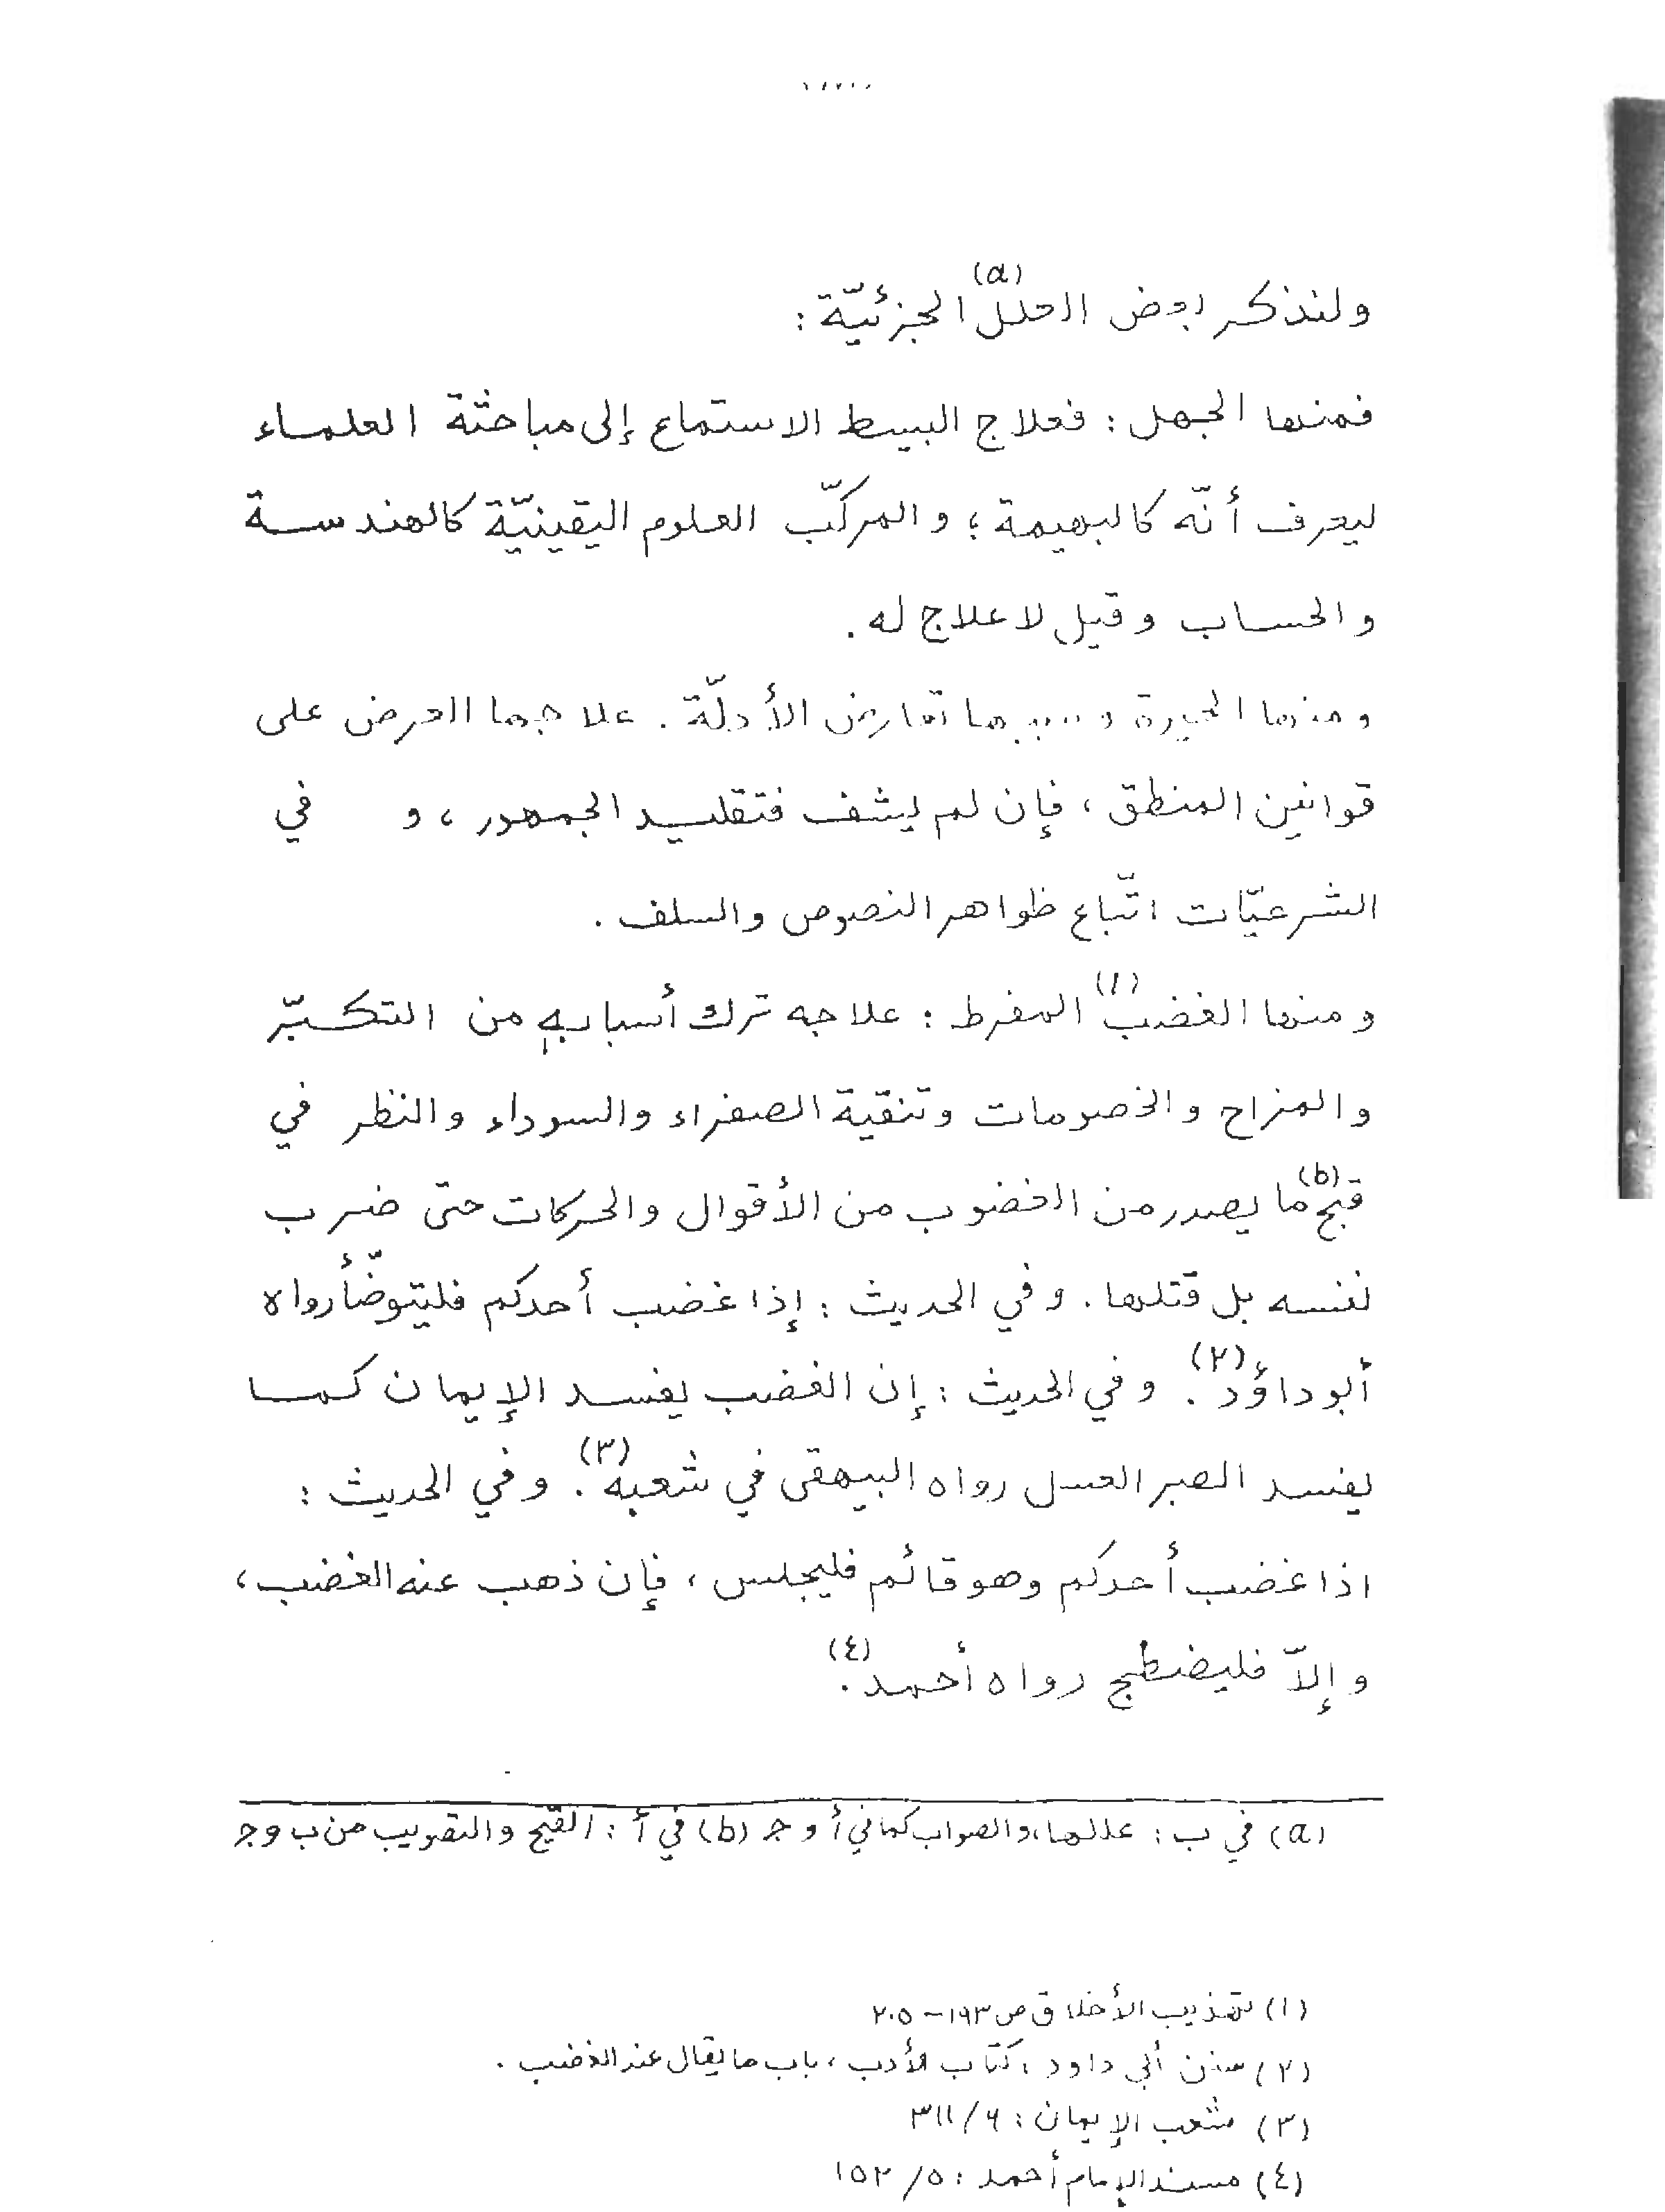 ولنذكر بعض العلل(a) الجزئيّة :
فمنها الجهل : فعلاج البسيط الاستماع إلى مباحثة العلماء
ليعرف أنّه كالبهيمة ؛ والمركّب العلوم اليقينيّة كالهندسة
والحساب وقيل لا علاج له .
ومنها الحيرة وسببها تعارض الأدلّة . علاجها العرض على
قوانين المنطق ، فإن لم يشف فتقليد الجمهور ، و في
الشرعيّات اتّباع ظواهر النصوص والسلف .
ومنها الغضب(١) المفرط : علاجه ترك أسبابه من التكبّر
والمزاح والخصومات وتنقية الصفراء والسوداء والنظر في
قبح(b) ما يصدر من الغضوب من الأقوال والحركات حتى ضرب
نفسه بل قتلها . وفي الحديث : إذا غضب أحدكم فليتوضّأ رواه
أبو داؤد(٢) . وفي الحديث : إن الغضب يفسد الإيمان كما
يفسد الصبر العسل رواه البيهقى في شعبه(٣) . وفي الحديث :
اذا غضب أحدكم وهو قائم فليجلس ، فإن ذهب عنه الغضب ،
وإلاّ فليضطجع رواه أحمد(٤) .
(a) في ب : عللها ، والصواب كما في أ و ج (b) في أ : القبح والتصويب من ب و ج
(١) تهذيب الأخلاق ص ١٩٣ - ٢٠٥
(٢) سنن أبي داود ، كتاب الأدب ، باب ما يقال عند الغضب .
(٣) شعب الإيمان : ٦/ ٣١١
(٤) مسند الإمام أحمد : ٥/ ١٥٢